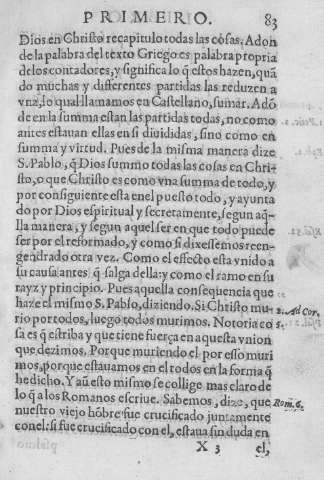 PRIMERO. 83
Dios en Christo recapitulo todas las cosas. Adon
de la palabra del texto Griego es palabra propria
de los contadores, y significa lo q̃ estos hazen, quã
do muchas y differentes partidas las reduzen a
vna, lo qual llamamos en Castellano, sumar. Adõ
de en la summa estan las partidas todas, no como
antes estauan ellas en si diuididas, sino como en
summa y virtud. Pues de la misma manera dize
S. Pablo, q̃ Dios summo todas las cosas en Chri-
sto, o que Christo es como vna summa de todo, y
por consiguiente esta en el puesto todo, y ayunta
do por Dios espiritual y secretamente, segun aq̃-
lla manera, y segun aquel ser en que todo puede
ser por el reformado, y como si dixessemos reen-
gendrado otra vez. Como el effecto esta vnido a
su causa antes q̃ salga della: y como el ramo en su
rayz y principio. Pues aquella consequencia que
haze el mismo S. Pablo, diziendo. Si Christo mu
2. Ad Cor.
rio por todos, luego todos murimos. Notoria co
sa es q̃ estriba y que tiene fuerça en aquesta vnion
que dezimos. Porque muriendo el por esso muri
mos, porque estauamos en el todos en la forma q̃
he dicho. Y aũ esto mismo se collige mas claro de
lo q̃ a los Romanos escriue. Sabemos, dize, que
Rom. 6.
nuestro viejo hõbre fue crucificado juntamente
con el: si fue crucificado con el, estaua sin duda en
X 3 el,